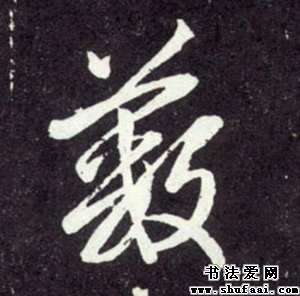 藪
书法爱网
www.shufaai.com